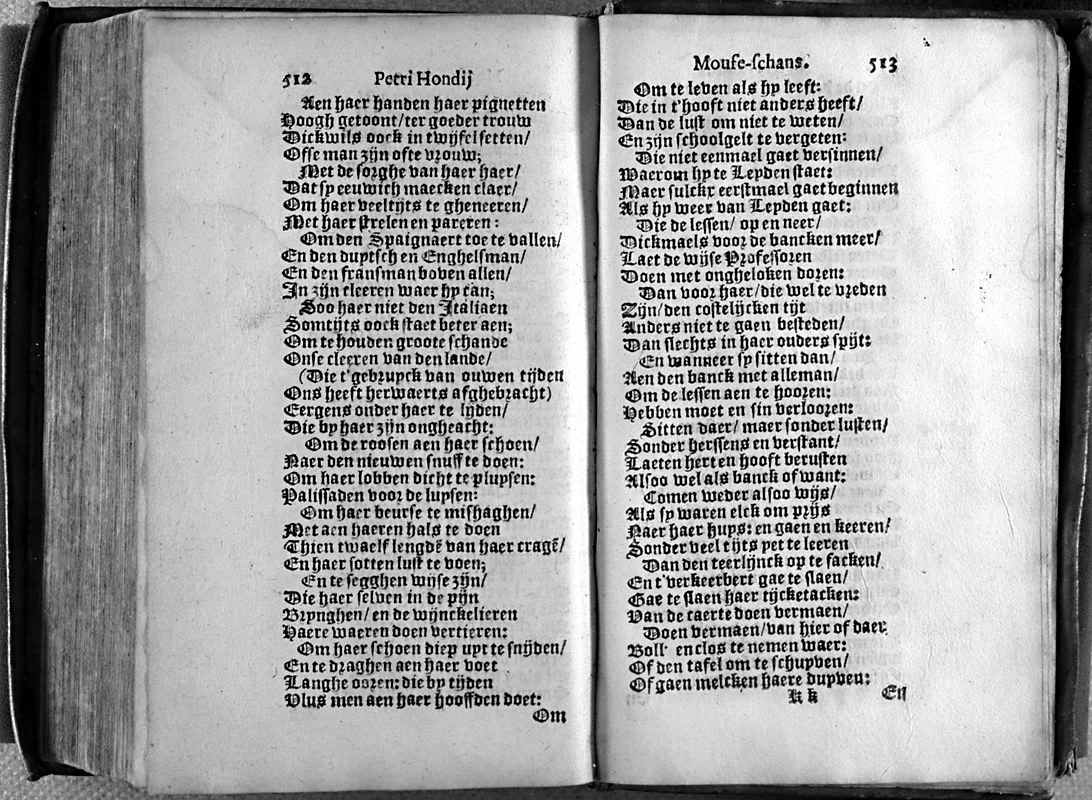 512 Petri Hondij
Aen haer handen haer pignetten
Hoogh getoont/ter goeder trouw
Dickwils oock in twijfel setten/
Offe man zijn ofte vrouw;
Met de sorghe van haer haer/
Dat sy eeuwich maecken claer/
Om haer veeltijts te gheneeren/
Met haer strelen en pareren:
Om den Spaignaert toe te vallen/
En den duytsch en Enghelsman/
En den fransman boven allen/
In zijn cleeren waer hy can;
Soo haer niet den Italiaen
Somtijts oock staet beter aen;
Om te houden groote schande
Onse cleeren van den lande/
(Die t'gebruyck van ouwen tijden
Ons heeft herwaerts afghebracht)
Eergens onder haer te lijden/
Die by haer zijn ongheacht:
Om de roosen aen haer schoen/
Naer den nieuwen snuff te doen:
Om haer lobben dicht te pluysen:
Palissaden voor de luysen:
Om haer beurse te mishaghen/
Met aen haeren hals te doen
Thien twaelf lengdē van haer cragē/
En haer sotten lust te voen;
En te segghen wijse zijn/
Die haer selven in de pijn
Brynghen/ en de wijnckelieren
Haere waeren doen vertieren:
Om haer schoen diep uyt te snijden/
En te draghen aen haer voet
Langhe ooren: die by tijden
Vlus men aen haer hooffden doet:
Om
Mouse-schans. 513
Om te leven als hy leeft:
Die in t'hooft niet anders heeft/
Dan de lust om niet te weten/
En zijn schoolgelt te vergeten:
Die niet eenmael gaet versinnen/
Waerom hy te Leyden staet:
Maer sulckx eerstmael gaet beginnen
Als hy weer van Leyden gaet:
Die de lessen/ op en neer/
Dickmaels voor de bancken meer/
Laet de wijse Professoren
Doen met ongheloken doren:
Dan voor haer/die wel te vreden
Zijn/den costelijcken tijt
Anders niet te gaen besteden/
Dan slechts in haer ouders spijt:
En wanneer sy sitten dan/
Aen den banck met alleman/
Om de lessen aen te hooren:
Hebben moet en sin verlooren:
Sitten daer/ maer sonder lusten/
Sonder herssens en verstant/
Laeten hert en hooft berusten
Alsoo wel als banck of want:
Comen weder alsoo wijs/
Als sy waren elck om prijs
Naer haer huys: en gaen en keeren/
Sonder veel tijts yet te leeren
Dan den teerlijnck op te facken/
En t'verkeerbert gae te slaen/
Gae te slaen haer tijcketacken:
Van de caerte doen vermaen/
Doen vermaen/van hier of daer
Boll' en clos te nemen waer:
Of den tafel om te schupven/
Of gaen melcken haere duyven:
K k En